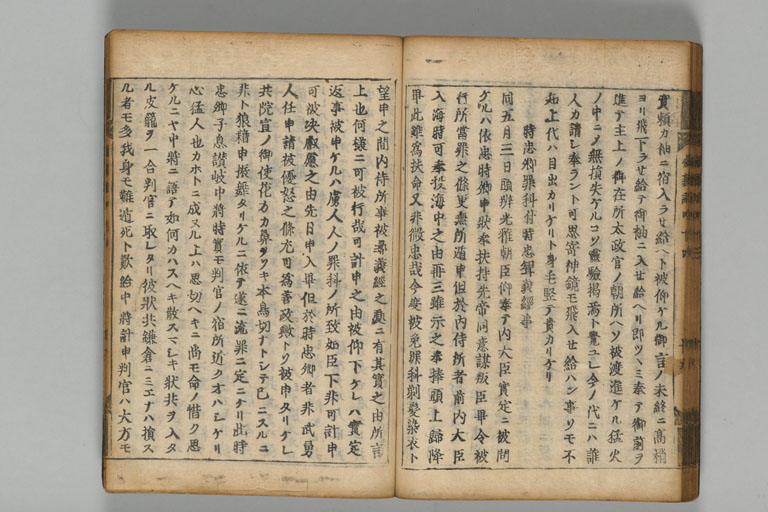 實頼カ袖ニ宿入ラセ給ヘト被仰ケル御言ノ未終ニ高梢
ヨリ飛下ラセ給テ御袖ニ入セ給ヘリ即ツヽミ奉テ御前ヲ
進テ主上ノ御在所太政官ノ朝所ヘソ被渡進ケル猛火
ノ中ニタニ無損失ケルコソ靈驗掲焉ト覺ユレ今ノ代ニハ誰
人カ請シ奉ラント可思寄神鏡モ飛入セ給ハン事ソモ不
知上代ハ目出カリケリト身毛竪テ貴カリケリ
時忠卿罪科付時忠聟義經事
同五月三日頭辨光雅朝臣仰奉テ内大臣實定ニ被問
ケルハ依忠時卿申狀奉扶持先帝同意謀叛臣畢今被
行所當罪之條更無所遁申但於内侍所者前内大臣
入海時可奉投海中之由再三雖示之奉捧頭上歸降
畢此雖爲扶命又非微忠哉今度被免罪科剃髮染衣ト
望申之間内侍所事被尋義經之處ニ有其實之由所言
上也何樣ニ可被行哉可計申之由被仰下ケレハ實定
返事被申ケルハ虜人人ノ罪科ノ所致如臣下非可計申
可被決叡慮之由先日申入畢但於時忠卿者非武勇
人任申請被優怒之條尤可爲善政歟トソ被申タリケレ
共院宣ノ御使花カカ鼻ヲツキ本鳥切ナトシテ已ニスルニ
非ト狼藉申振舞タリケルニ依テ遂ニ流罪ニ定ニケリ此時
忠卿子息讃岐中將時實モ判官ノ宿所近クオハシケリ
心猛人也カホトニ成ヌル上ハ思切ヘキニ尚モ命ノ惜ク思
ケルニヤ中將ニ語テ如何カハスヘキ散スマシキ狀共ヲ入タ
ル皮籠ヲ一合判官ニ取レタリ彼狀共鎌倉ニミエナハ損ス
ル者モ多我身モ難遁死ト歎給中將計申判官ハ大方モ